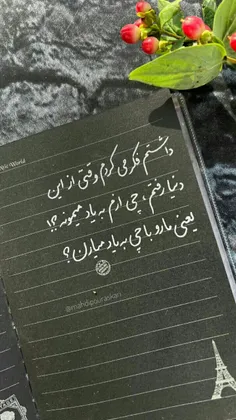 داشتم فکر می کردم وقتی از این
دنیا رفتم ، چی ازم به یاد میمونه ؟!
یعنی ما رو با چی به یاد میارن ؟